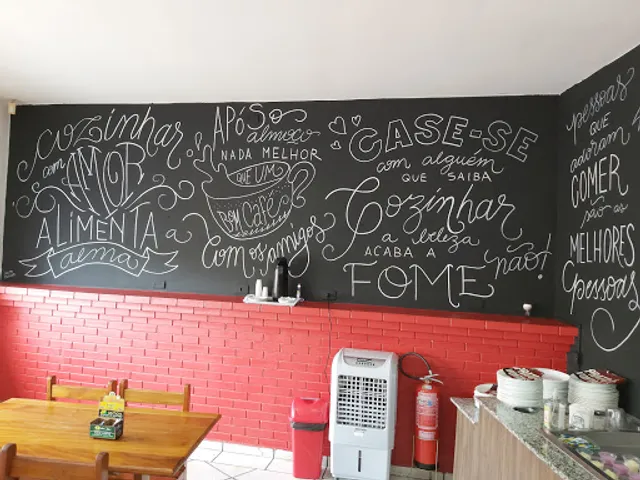 COZinhar
com AMOR
ALiMENTA a
alma
APÓS o
almoço
NADA MELHOR
QUE UM
BOM Café
Com os amigos
CASE-SE
com alguém
QUE SAIBA
Cozinhar
a beleza
ACABA A
FOME não!
pessoas
QUE
adoram
COMER
são as
MELHORES
pessoas